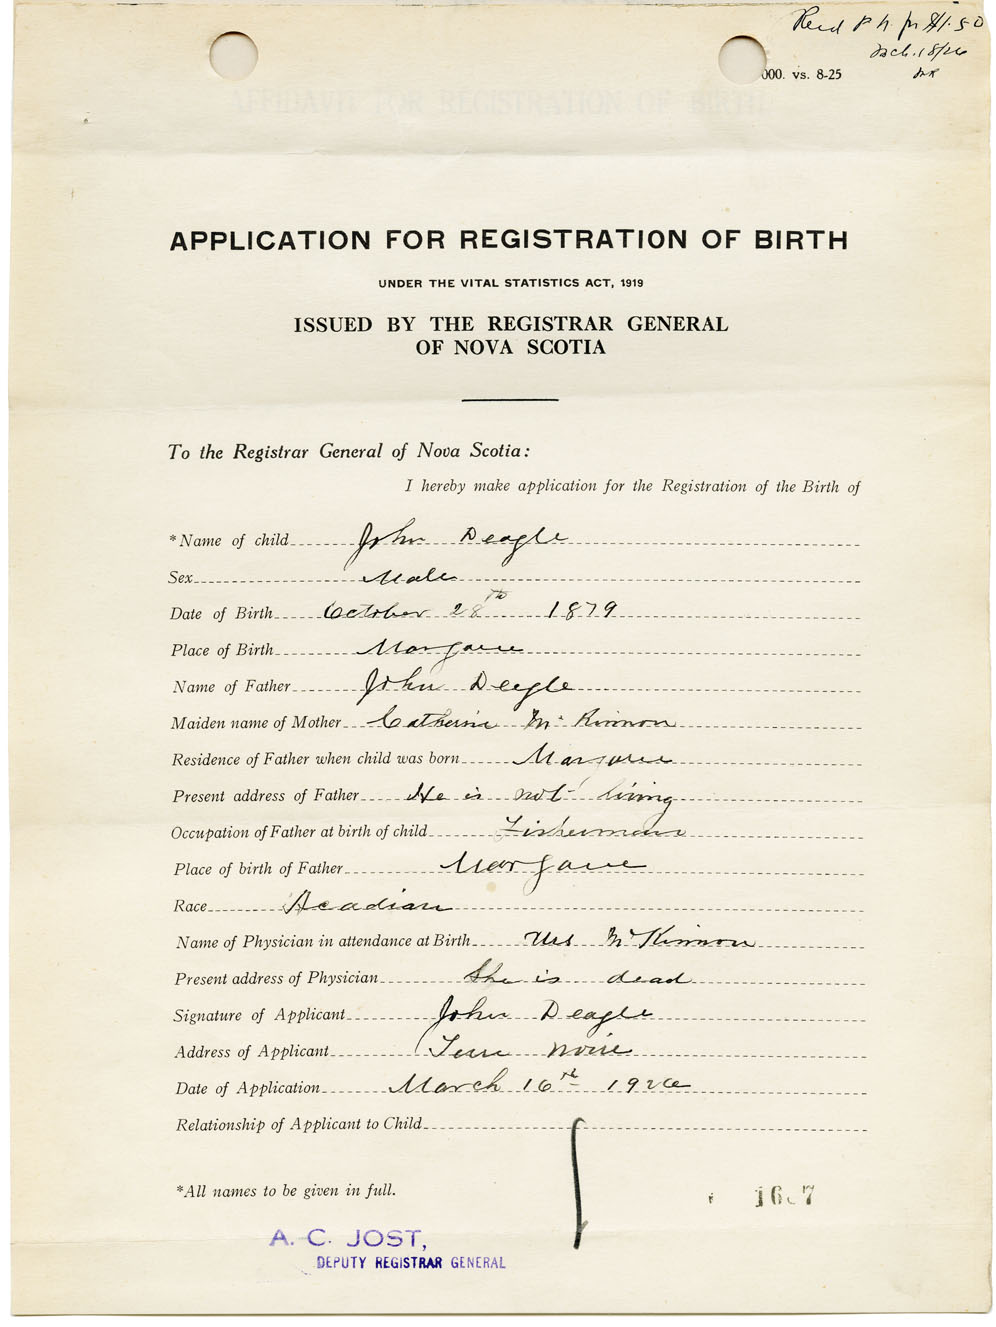 Recd P.N. for $1.50
Mch. 18/26
000. vs. 8-25
AFFIDAVIT FOR REGISTRATION OF BIRTH
APPLICATION FOR REGISTRATION OF BIRTH
UNDER THE VITAL STATISTICS ACT, 1919
ISSUED BY THE REGISTRAR GENERAL
OF NOVA SCOTIA
To the Registrar General of Nova Scotia:
I hereby make application for the Registration of the Birth of
*Name of child John Deagle
Sex Male
Date of Birth October 28th 1879
Place of Birth Margaree
Name of Father John Deagle
Maiden name of Mother Catherine McKinnon
Residence of Father when child was born Margaree
Present address of Father He is not living
Occupation of Father at birth of child Fisherman
Place of birth of Father Margaree
Race Acadian
Name of Physician in attendance at Birth Mrs McKinnon
Present address of Physician She is dead
Signature of Applicant John Deagle
Address of Applicant Terre Noire
Date of Application March 16th 1926
Relationship of Applicant to Child
*All names to be given in full.
A. C. JOST,
DEPUTY REGISTRAR GENERAL